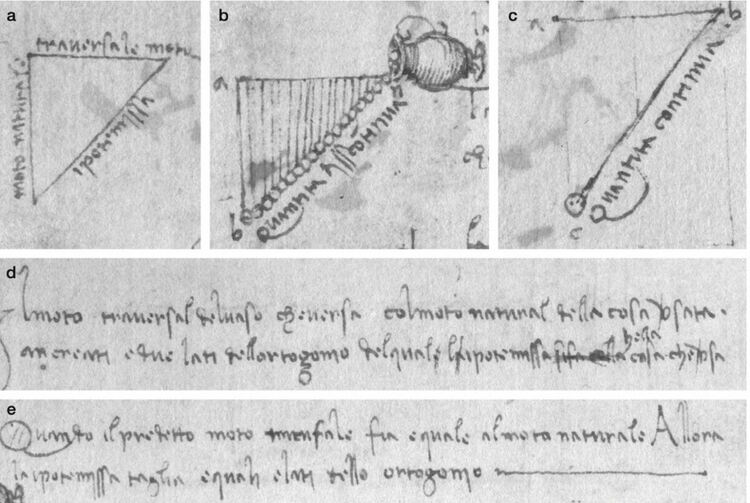 a
traversale moto
moto naturale
ipotemissa
b
a
b
Quantita disscontinua
c
a
b
c
Quantita continua
d
Il moto traversal del vaso che versa col moto natural della cosa
an creati e due lati dell ortogonio del quale l ipotemissa
hessa
la cosa che
e
Quando il predetto moto fia equale al moto naturale Allora
la ipotemissa taglia equali e lati dello ortogonio